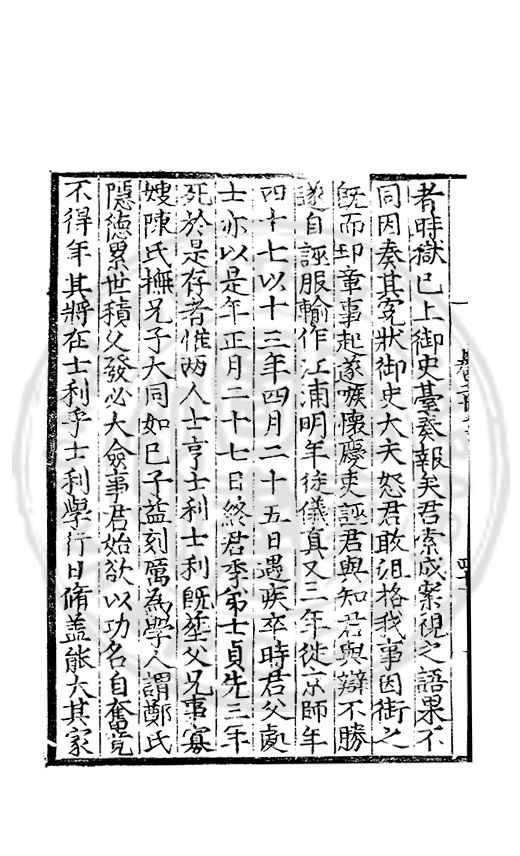 者時獄已上御史臺奏報矣君索成案視之語果不
同因奏其冤狀御史大夫怒君敢沮格我事因銜之
既而印章事起遂嗾懷慶吏誣君與知君與辯不勝
遂自誣服輸作江浦明年徙儀真又三年徙京師年
四十七以十三年四月二十五日遇疾卒時君父處
士亦以是年正月二十七日終君季弟士貞先三年
死於是存者惟两人士亨士利士利既塟父兄事寡
嫂陳氏撫兄子大同如己子益刻厲為學人謂鄭氏
隱德累世積父發必大僉事君始欲以功名自奮竟
不得年其將在士利乎士利學行日脩盖能大其家